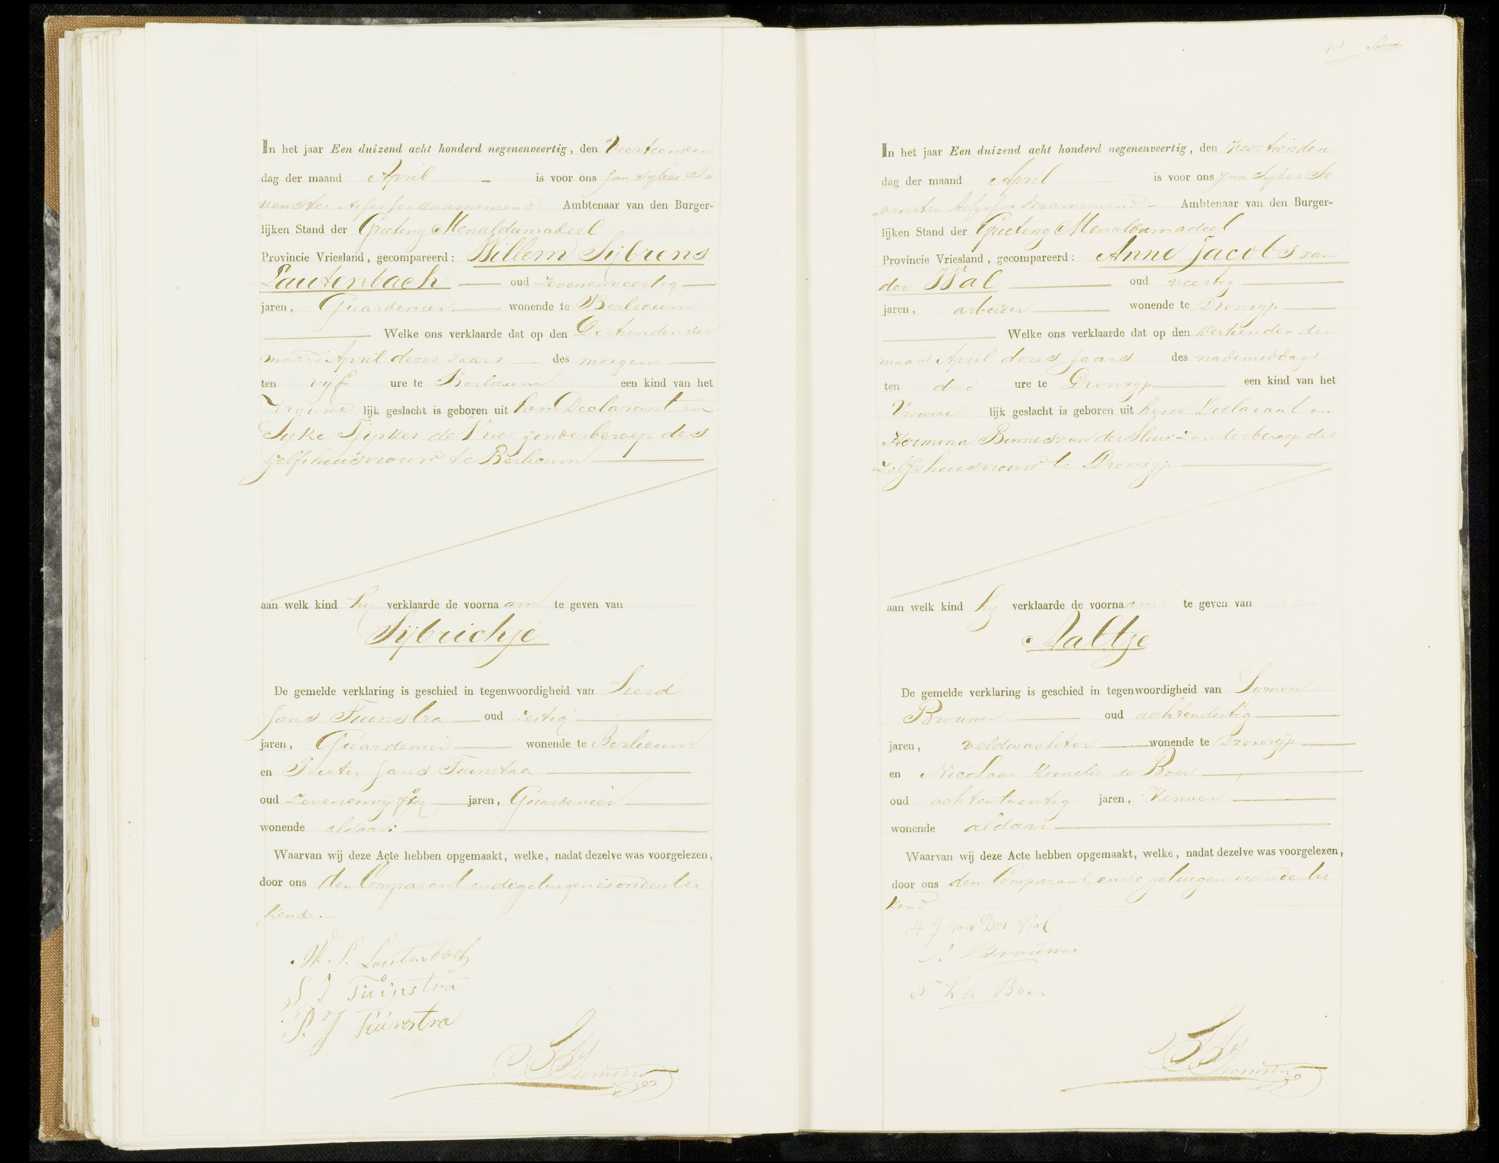 In het jaar Een duizend acht honderd negenenveertig, den Veertienden
dag der maand April is voor ons Jan Sybes
Ambtenaar van den Burger-
lijken Stand der Grieteny Menaldumadeel
Provincie Vriesland, gecompareerd: Willem Sijbrens
Lautenbach oud zevenenveertig
jaren, Gardenier wonende te Berlicum
Welke ons verklaarde dat op den Dertienden der
maand April dezes jaars des morgens
ten vijf ure te Berlicum een kind van het
Vrouwe lijk geslacht is geboren uit hem Declarant en
Sjirkes de Vries zonder beroep des
zelfs huisvrouw te Berlicum
aan welk kind hij verklaarde de voorna am te geven van
Sijbrichje
De gemelde verklaring is geschied in tegenwoordigheid van Sierd
Jans Tuinstra oud
jaren, Gardenier wonende te Berlicum
en Pieter Jans Tuinstra
oud zevenenvijftig jaren, Gardenier
wonende aldaar
Waarvan wij deze Acte hebben opgemaakt, welke, nadat dezelve was voorgelezen,
door ons den Comparant en de getuigen is onderte
kend.
W. S. Lautenbach
S J Tuinstra
P. J Tuinstra
In het jaar Een duizend acht honderd negenenveertig, den Veertienden
dag der maand April is voor ons Jan Sybes
Ambtenaar van den Burger-
lijken Stand der Grieteny Menaldumadeel
Provincie Vriesland, gecompareerd: Anne Jacobs van
der Wal oud veertig
jaren, arbeider wonende te Dronrijp
Welke ons verklaarde dat op den dertienden der
maand April dezes jaars des nademiddags
ten drie ure te Dronrijp een kind van het
Vrouwe lijk geslacht is geboren uit hem Declarant en
Harmina Binnes van der Sluis zonder beroep des
zelfs huisvrouw te Dronrijp
aan welk kind hij verklaarde de voorna am te geven van
Aaltje
De gemelde verklaring is geschied in tegenwoordigheid van
Brouwer oud achtendertig
jaren, veldwachter wonende te Dronrijp
en Nicolaas de Boer
oud achtentwintig jaren,
wonende aldaar
Waarvan wij deze Acte hebben opgemaakt, welke, nadat dezelve was voorgelezen,
door ons den Comparant en de getuigen is onderte
kend
A J van Der Wal
S. Brouwer
N K de Boer